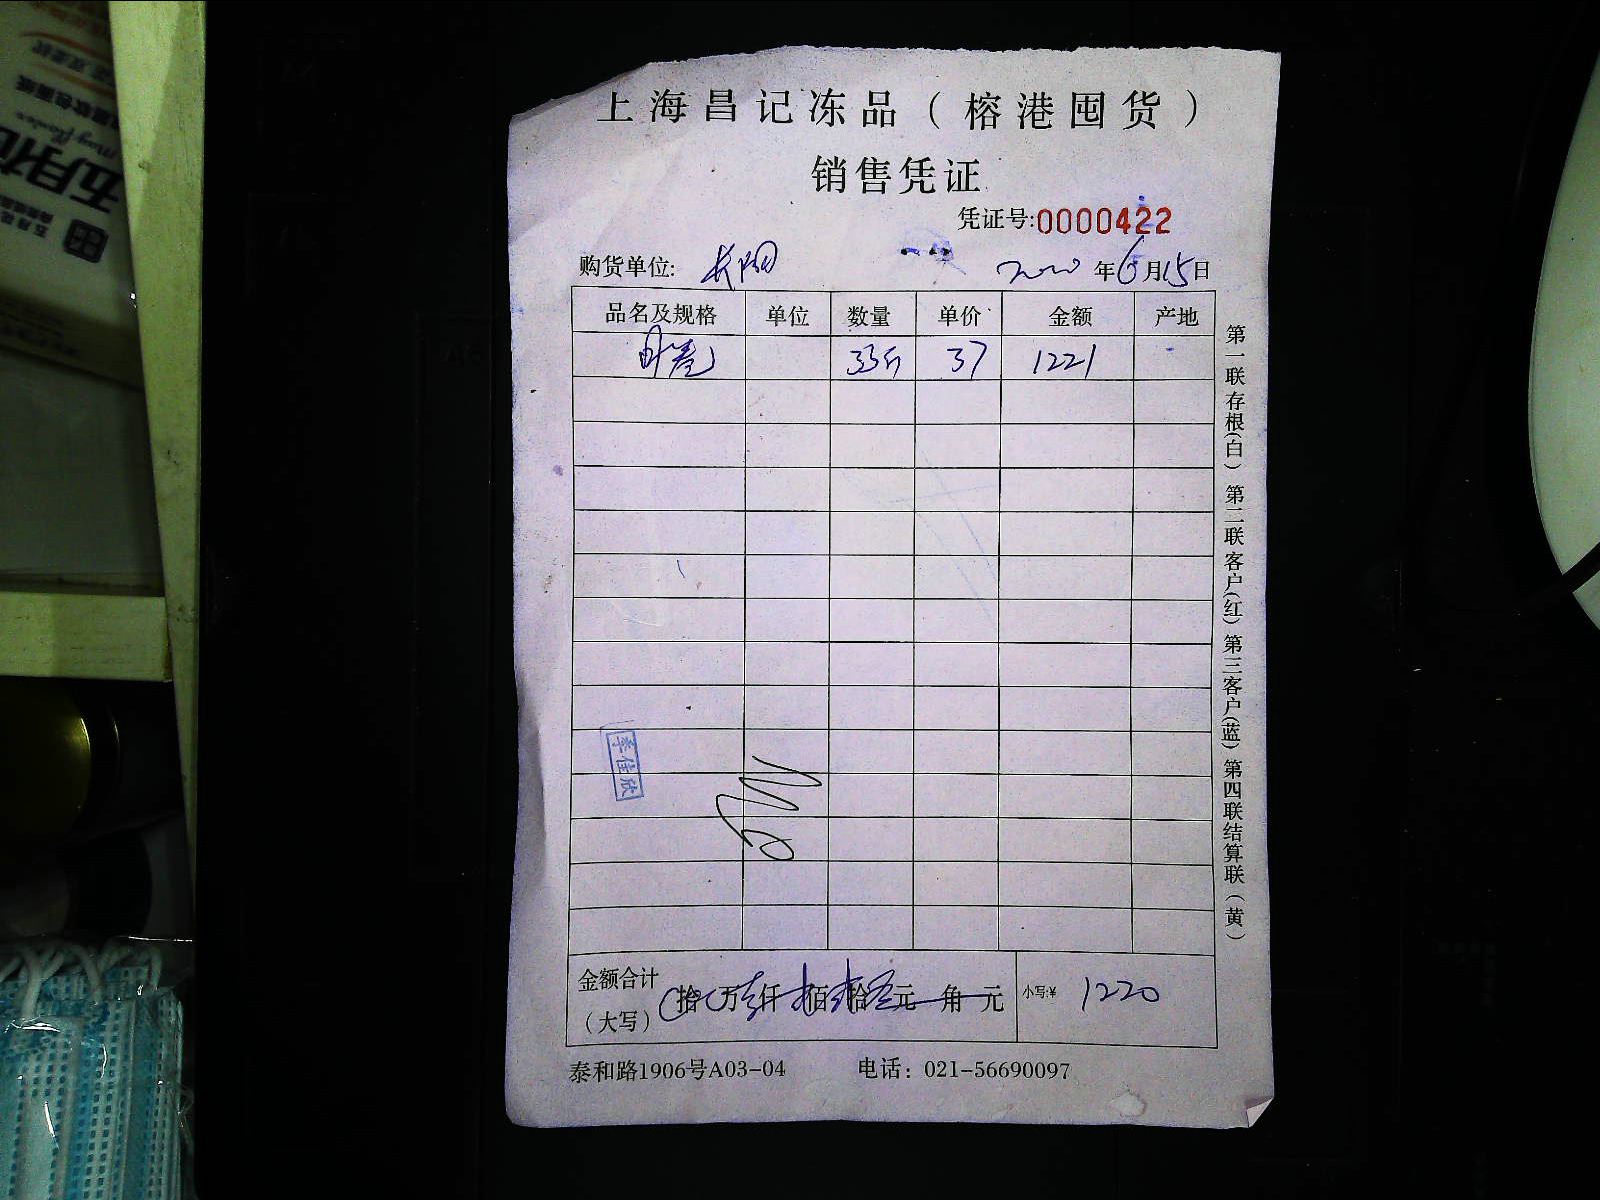 上海昌记冻品（榕港囤货）
销售凭证
凭证号:0000422
购货单位: 长阳 2020年6月15日
品名及规格 单位 数量 单价 金额 产地
33斤 37 1221
第一联存根(白) 第二联客户(红) 第三客户(蓝) 第四联结算联(黄)
李佳欣
金额合计（大写） 拾 万 仟 佰 拾 元 角 元 小写:¥ 1220
泰和路1906号A03-04 电话：021-56690097
五月花